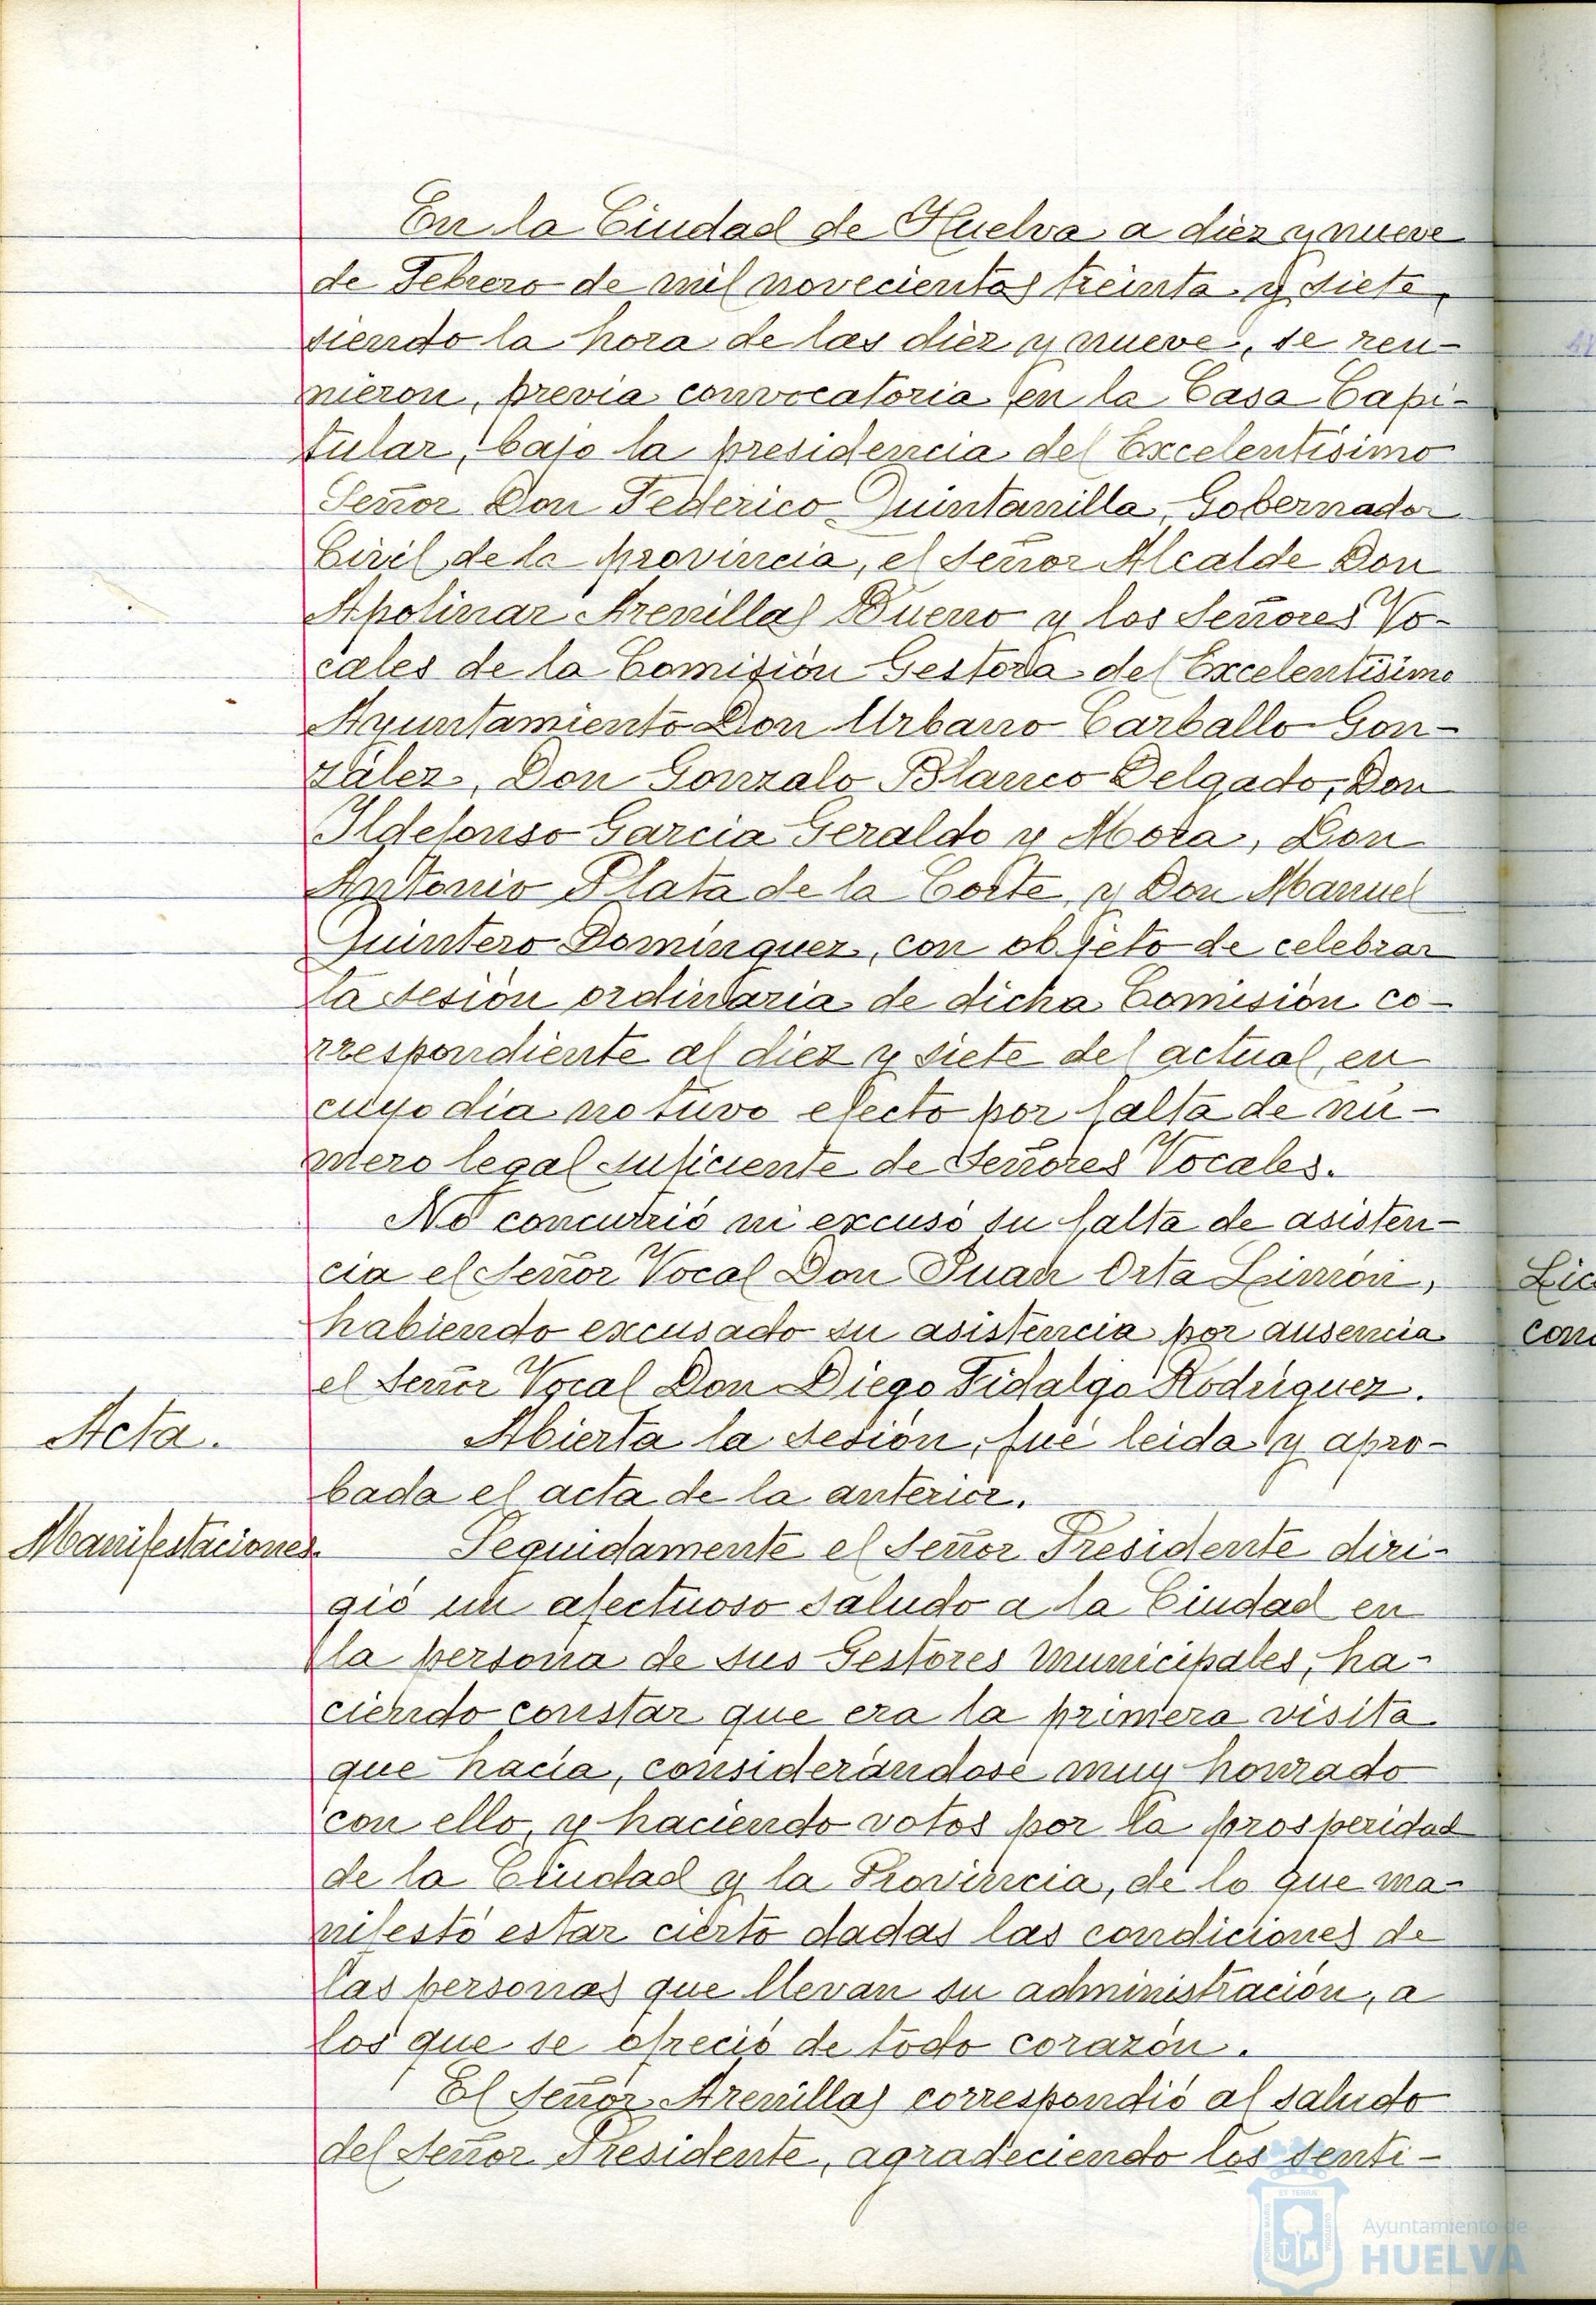 En la Ciudad de Huelva a diez y nueve
de Febrero de mil novecientos treinta y siete,
siendo la hora de las diez y nueve, se reu-
nieron, previa convocatoria en la Casa Capi-
tular, bajo la presidencia del Excelentísimo
Señor Don Federico Quintanilla, Gobernador
Civil de la provincia, el señor Alcalde Don
Apolinar Arenillas Bueno y los Señores Vo-
cales de la Comisión Gestora del Excelentísimo
Ayuntamiento Don Urbano Carballo Gon-
zález, Don Gonzalo Blanco Delgado, Don
Ildefonso García Geraldo y Mora, Don
Antonio Plata de la Corte, y Don Manuel
Quintero Domínguez, con objeto de celebrar
la sesión ordinaria de dicha Comisión co-
rrespondiente al diez y siete del actual, en
cuyo día no tuvo efecto por falta de nú-
mero legal suficiente de Señores Vocales.
No concurrió ni excusó su falta de asisten-
cia el Señor Vocal Don Juan Orta
habiendo excusado su asistencia por ausencia
el Señor Vocal Don Diego Fidalgo Rodríguez.
Acta.
Abierta la sesión, fué leida y apro-
bada el acta de la anterior.
Manifestaciones.
Seguidamente el Señor Presidente diri-
gió un afectuoso saludo a la Ciudad en
la persona de sus Gestores Municipales, ha-
ciendo constar que era la primera visita
que hacía, considerándose muy honrado
con ello, y haciendo votos por la prosperidad
de la Ciudad y la Provincia, de lo que ma-
nifestó estar cierto dadas las condiciones de
las personas que llevan su administración, a
los que se ofreció de todo corazón.
El Señor Arenillas correspondió al saludo
del Señor Presidente, agradeciendo los senti-
Lic
con
Ayuntamiento de
HUELVA